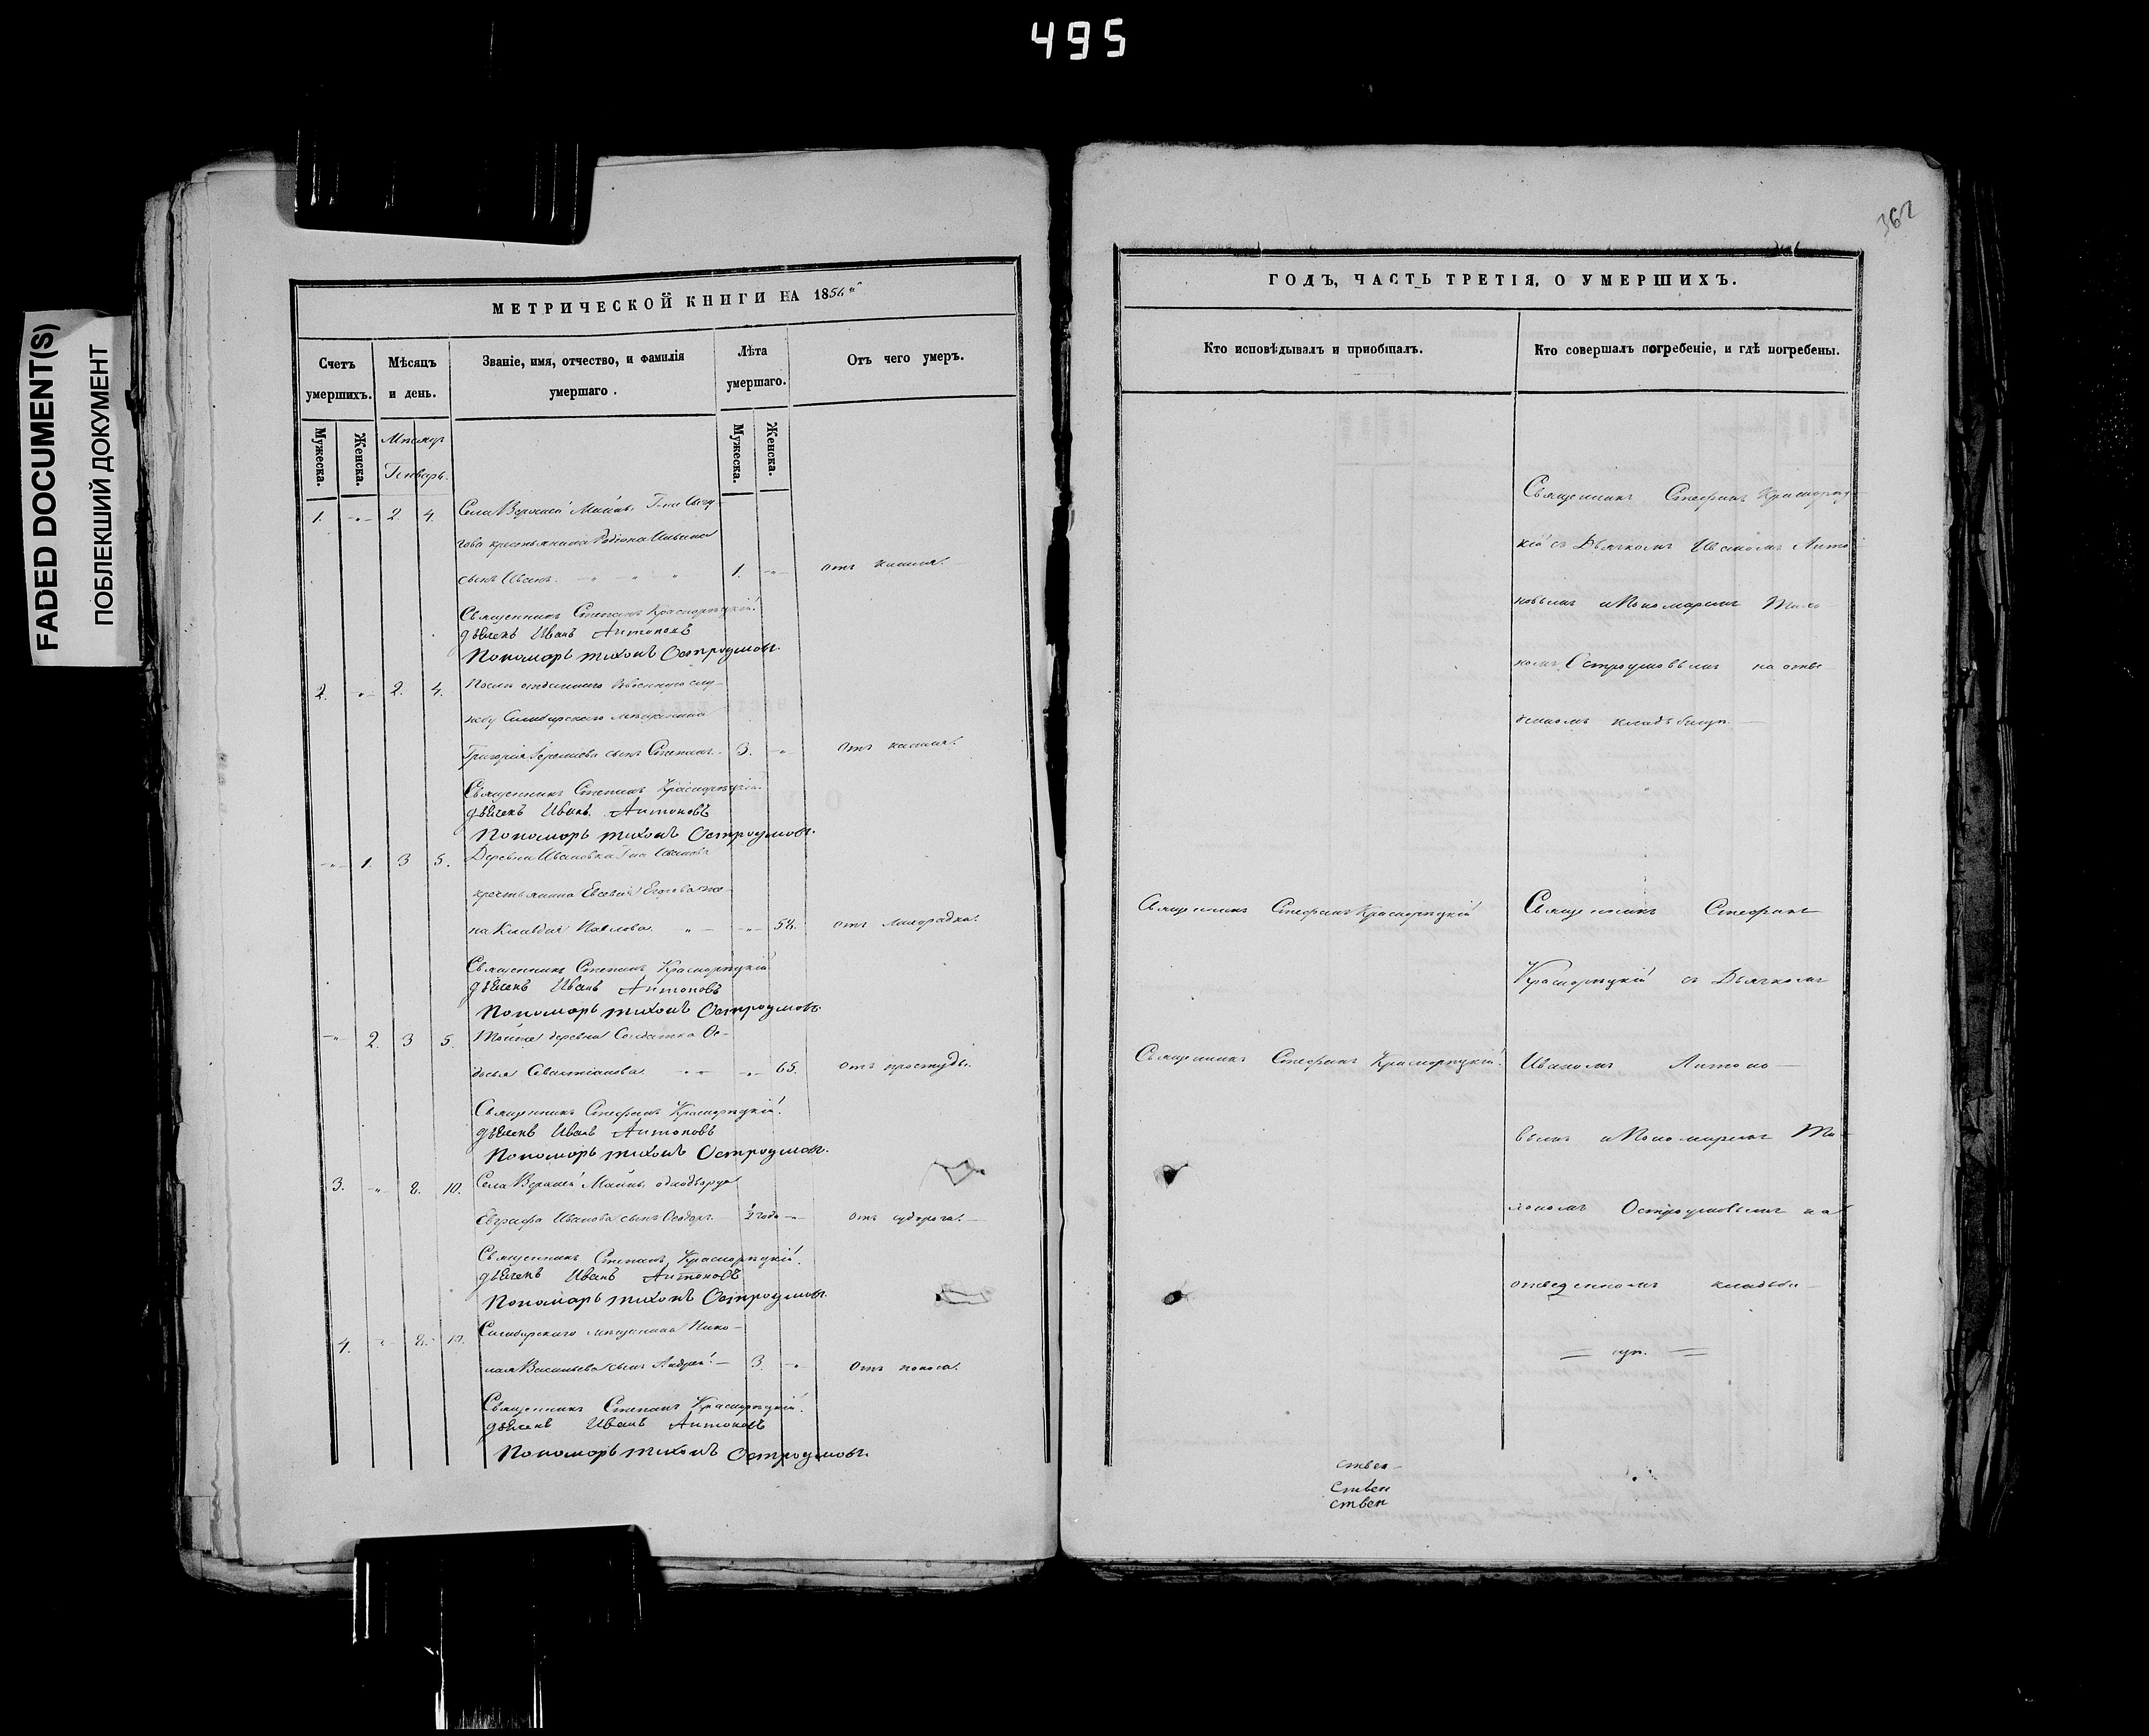 495
FADED DOCUMENT(S)
ПОБЛЕКШИЙ ДОКУМЕНТ
МЕТРИЧЕСКОЙ КНИГИ НА 1856й
Счетъ умершихъ.
Мѣсяцъ и день.
Званіе, имя, отчество, и фамилія умершаго.
Лѣта умершаго.
Отъ чего умеръ.
Мужеска.
Женска.
Мѣсяцъ
Генварь.
Мужеска.
Женска.
1. -"- 2. 4. Села Верхней Майны Г-на
крестьянина Родіона Ильина
сынъ Иванъ. 1. -"- отъ кашля.
Священникъ Стефанъ Красноряцкій
дьячекъ Иванъ Антоновъ
Пономарь тихонъ Остроумовъ.
2. -"- 2. 4. отданнаго въ военную слу-
жбу Симбирскаго мѣщанина
Григорія сынъ Степанъ. 3. -"- отъ кашля.
Священникъ Стефанъ Красноряцкій
дьячекъ Иванъ Антоновъ
Пономарь тихонъ Остроумовъ.
-"- 1. 3 5. Деревни Ивановки Г-на
крестьянина Евсевія Егорова же-
на Клавдія Павлова. -"- отъ лихорадки.
Священникъ Стефанъ Красноряцкій
дьячекъ Иванъ Антоновъ
Пономарь тихонъ Остроумовъ.
-"- 2. 3 5. Тойже деревни Солдатка
Севастіанова. -"- 65. отъ простуды.
Священникъ Стефанъ Красноряцкій
дьячекъ Иванъ Антоновъ
Пономарь тихонъ Остроумовъ.
3. -"- 8. 10. Села Верхней Майны однодворца
Евграфа Иванова сынъ Ѳеодоръ. ½ года -"- отъ судороги.
Священникъ Стефанъ Красноряцкій
дьячекъ Иванъ Антоновъ
Пономарь тихонъ Остроумовъ.
4. -"- 8. 10. Симбирскаго мѣщанина Нико-
лая Васильева сынъ Андрей. 3. -"- отъ поноса.
Священникъ Стефанъ Красноряцкій
дьячекъ Иванъ Антоновъ
Пономарь тихонъ Остроумовъ.
362
ГОДЪ, ЧАСТЬ ТРЕТІЯ, О УМЕРШИХЪ.
Кто исповѣдывалъ и приобщалъ.
Кто совершалъ погребеніе, и гдѣ погребены.
Священникъ Стефанъ Красноряц-
кій съ Дьячкомъ Иваномъ Анто-
новымъ и Пономаремъ Тихо-
номъ Остроумовымъ на отве-
денномъ кладбищѣ.
Священникъ Стефанъ Красноряцкій
Священникъ Стефанъ
Красноряцкій съ Дьячкомъ
Священникъ Стефанъ Красноряцкій
Иваномъ Антоно-
вымъ и Пономаремъ Ти-
хономъ Остроумовымъ на
отведенномъ кладби-
щѣ.
ствен-
ствен
ствен